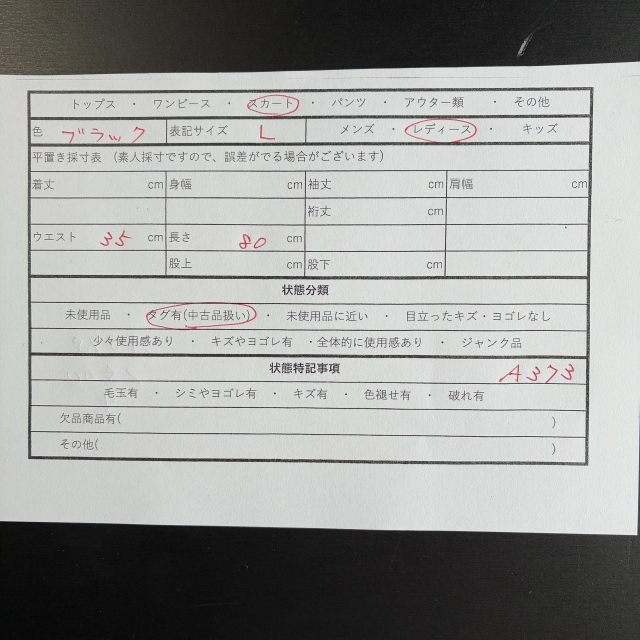 トップス ・ ワンピース ・ スカート ・ パンツ ・ アウター類 ・ その他
色 ブラック 表記サイズ L メンズ ・ レディース ・ キッズ
平置き採寸表 (素人採寸ですので、誤差がでる場合がございます)
着丈 cm 身幅 cm 袖丈 cm 肩幅 cm
裄丈 cm
ウエスト 35 cm 長さ 80 cm
股上 cm 股下 cm
状態分類
未使用品 ・ タグ有(中古品扱い) ・ 未使用品に近い ・ 目立ったキズ・ヨゴレなし
少々使用感あり ・ キズやヨゴレ有 ・全体的に使用感あり ・ ジャンク品
状態特記事項 A373
毛玉有 ・ シミやヨゴレ有 ・ キズ有 ・ 色褪せ有 ・ 破れ有
欠品商品有( )
その他( )